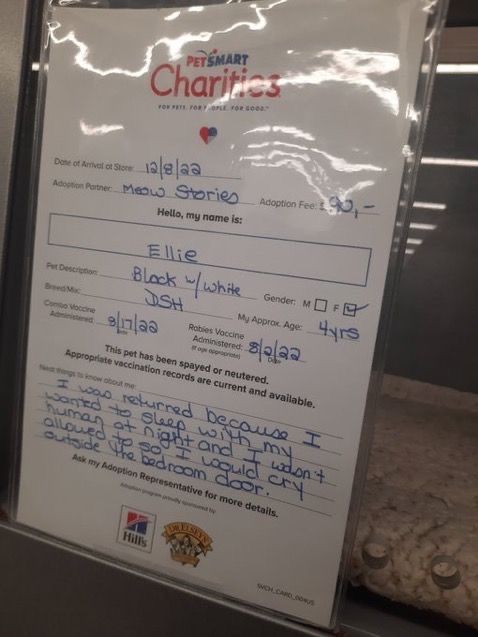 PETSMART
Charities
FOR PETS. FOR PEOPLE. FOR GOOD.™
Date of Arrival at Store: 12/8/22
Adoption Partner: Meow Stories Adoption Fee: $90,-
Hello, my name is:
Ellie
Pet Description: Black w/ white Gender: M F
Breed/Mix: DSH My Approx. Age: 4yrs
Combo Vaccine Administered: 8/17/22 Date
Rabies Vaccine Administered: 8/2/22 Date
(if age appropriate)
This pet has been spayed or neutered.
Appropriate vaccination records are current and available.
Neat things to know about me:
I was returned because I
wanted to sleep with my
human at night and I wasn't
allowed to so I would cry
outside the bedroom door.
Ask my Adoption Representative for more details.
Adoption program proudly sponsored by:
Hill's
DR. ELSEY'S
SVCH_CARD_004US